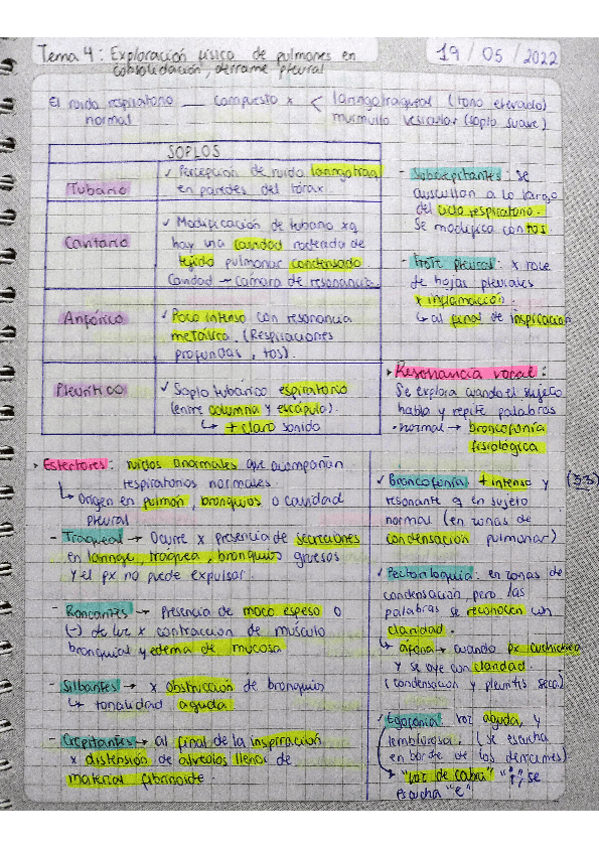 Tema 4: Exploración física de pulmones en
consolidación, derrame pleural
19 / 05 / 2022
El ruido respiratorio __ compuesto x < laringotraqueal (tono elevado)
normal murmullo vesicular (soplo suave)
SOPLOS
Tubario
✓ Percepción de ruido laringotraq
en paredes del tórax.
Cavitario
✓ Modificación de tubario xq
hay una cavidad rodeada de
tejido pulmonar condensado
Cavidad → cámara de resonancia.
Anfórico
✓ Poco intenso con resonancia
metálica. (Respiraciones
profundas, tos).
Pleurítico
✓ Soplo tubárico espiratorio
(entre columna y escápula).
↳ + claro sonido
▸ Estertores: ruidos anormales que acompañan
respiratorios normales
↳ Origen en pulmón, bronquios o cavidad
pleural
- Traqueal → Ocurre x presencia de secreciones
en laringe, tráquea, bronquios gruesos
y el px no puede expulsar.
- Roncantes → Presencia de moco espeso o
(-) de luz x contracción de músculo
bronquial y edema de mucosa
- Silbantes → x obstrucción de bronquios
↳ tonalidad aguda
- Crepitantes → al final de la inspiración
x distensión de alveolos llenos de
material fibrinoide.
- Subcrepitantes: se
auscultan a lo largo
del ciclo respiratorio.
Se modifica con tos
- Frote pleural: x roce
de hojas pleurales
x inflamación.
↳ al final de inspiración
▸ Resonancia vocal:
Se explora cuando el sujeto
habla y repite palabras
· normal → broncofonía
fisiológica
✓ Broncofonía + intenso y (33)
resonante q en sujeto
normal (en zonas de
condensación pulmonar)
✓ Pectoriloquia: en zonas de
condensación, pero las
palabras se reconocen con
claridad.
↳ áfona → cuando px cuchichea
y se oye con claridad.
(condensación y pleuritis seca)
✓ Egofonía: voz aguda, y
temblorosa. (se escucha
en borde de los derrames)
↳ "voz de cabra" "i", se
escucha "e"